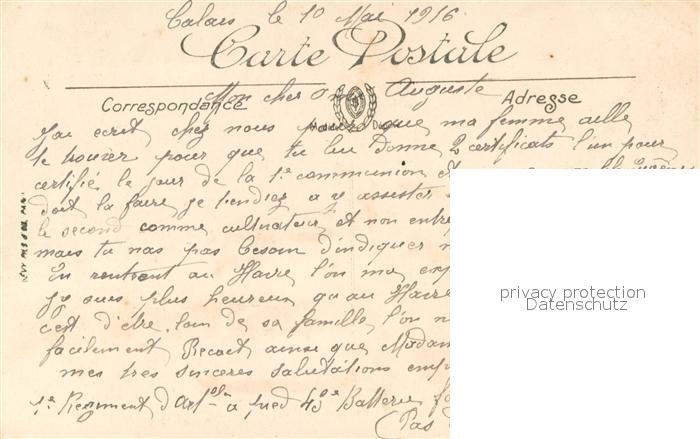 Calais le 10 Mai 1916
Carte Postale
Mon cher Auguste
Correspondance Adresse
J'ai ecrit chez nous que ma femme aille
te trouver pour que tu lui donne 2 certificats l'un pour
certifié le jour de la 1e communion et
doit la faire, je tiendrez a y assister
le second comme cultivateur et non
mais tu nas pas besoin d'indiquer
En rentrant au Havre l'on ma
plus heureux qu'au Havre
c'est d'être loin de sa famille, l'on
facilement Recoit ainsi que
mes tres sinceres salutations
1e Regiment d'Art a pied 43e Batterie
(Pas
privacy protection
Datenschutz